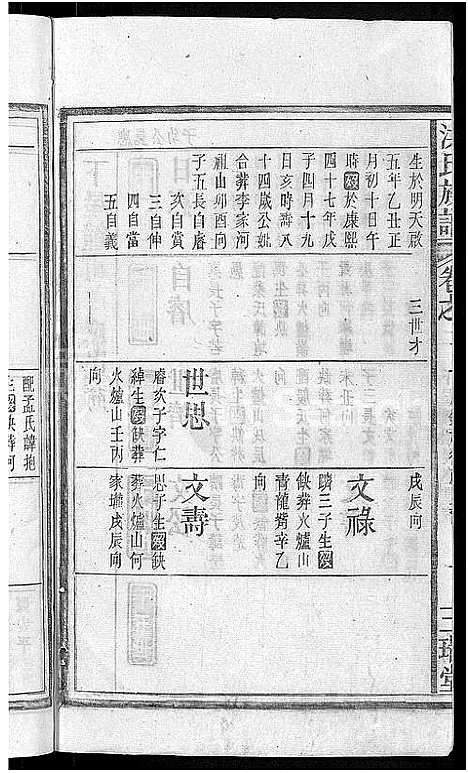 生於明天啟
五年乙丑正
月初十日午
時歿於康熙
四十七年戊
子四月十九
日亥時壽八
十四歲公妣
合葬李家河
祖山卯酉向
子五長自睿
次自賞
三自伸
四自當
五自義
世思
睿次子字仁
緯生歿缺葬
火爐山壬丙
向
戌辰向
文祿
麟三子生歿
缺葬火爐山
青龍觜辛乙
向
文壽
思子生歿缺
葬火爐山何
家壠戌辰向
氏族譜
卷之
三世才
三瑞堂
配孟氏諱抱